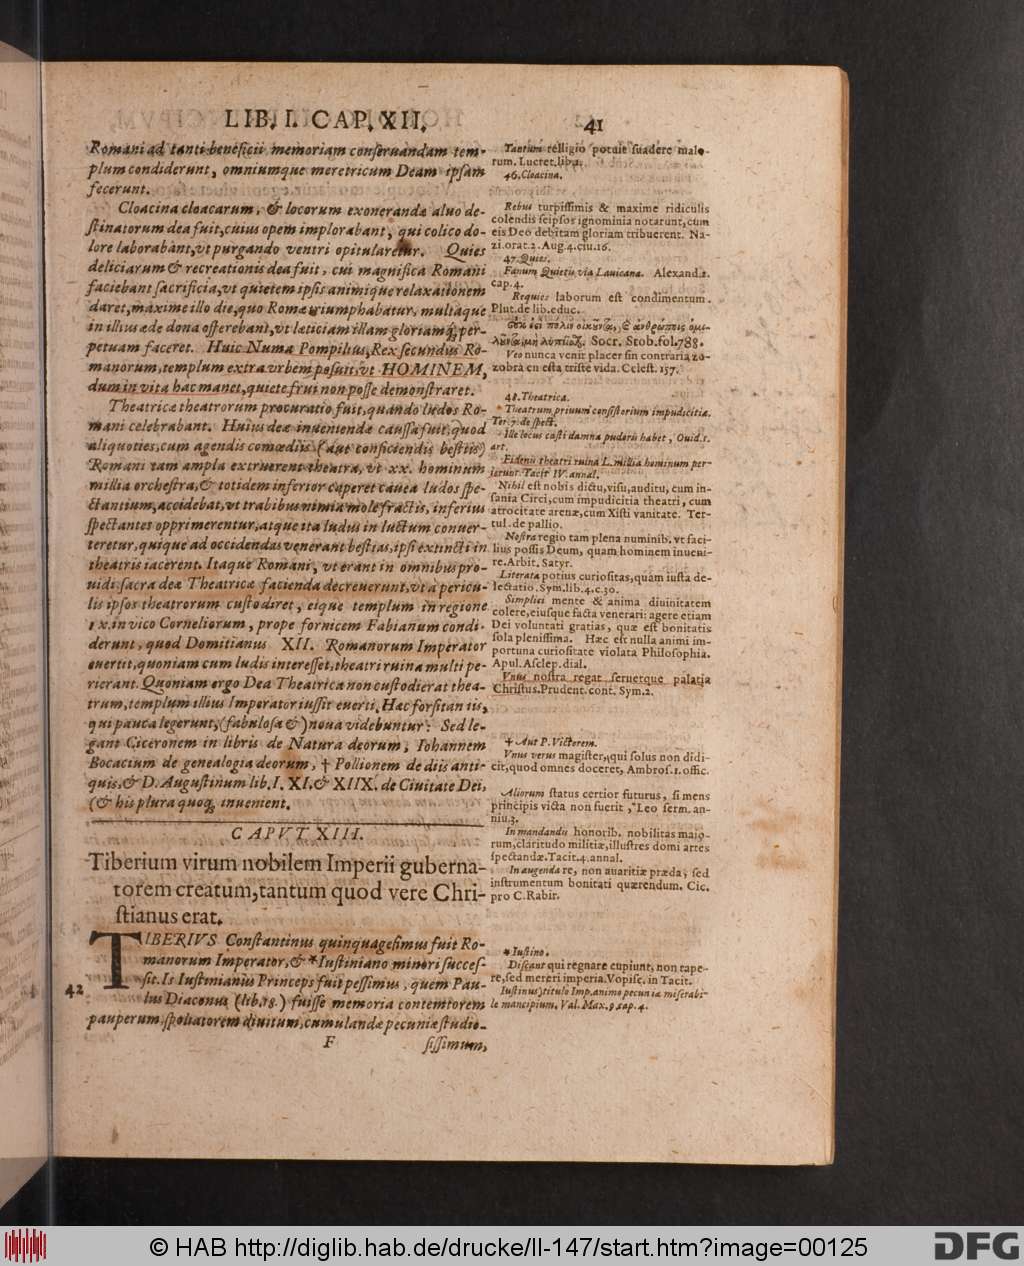 LIB. I. CAP. XII. 41
Romani ad tanti beneficii memoriam conseruandam tem-
plum condiderunt, omniumque meretricum Deam ipsam
fecerunt.
Cloacina cloacarum, & locorum exonerandæ aluo de-
stinatorum dea fuit, cuius opem implorabant, qui colico do-
lore laborabant, vt purgando ventri opitularetur. Quies
deliciarum & recreationis dea fuit, cui magnifica Romani
faciebant sacrificia, vt quietem ipsis animique relaxationem
daret, maxime illo die, quo Romæ triumphabatur, multaque
in illius æde dona offerebant, vt lætitiam illam gloriamq́; per-
petuam faceret. Huic Numa Pompilius, Rex secundus Ro-
manorum, templum extra vrbem posuit, vt HOMINEM,
dum in vita hac manet, quiete frui non posse demonstraret.
Theatricæ theatrorum procuratio fuit, quando ludos Ro-
mani celebrabant. Huius deæ inueniendæ caussa fuit, quod
aliquoties, cum agendis comœdiis (aut conficiendis bestiis)
Romani tam ampla extruerent theatra, vt xx. hominum
millia orchestra, & totidem inferior caperet cauea ludos spe-
ctantium, accidebat, vt trabibus nimia mole fractis, inferius
spectantes opprimerentur, atque ita ludus in luctum conuer-
teretur, quique ad occidendas venerant bestias, ipsi extincti in
theatris iacerent. Itaque Romani, vt erant in omnibus pro-
uidi: sacra deæ Theatricæ facienda decreuerunt, vt à pericu-
lis ipsos theatrorum custodiret, eique templum in regione
ix. in vico Corneliorum, prope fornicem Fabianum condi-
derunt, quod Domitianus XII. Romanorum Imperator
euertit, quoniam cum ludis interesset, theatri ruina multi pe-
rierant. Quoniam ergo Dea Theatrica non custodierat thea-
trum, templum illius Imperator iussit euerti. Hæc forsitan iis,
qui pauca legerunt, (fabulosa &) noua videbuntur: Sed le-
gant Ciceronem in libris de Natura deorum, Iohannem
Bocacium de genealogia deorum, † Pollionem de diis anti-
quis, & D. Augustinum lib. I. XI. & XIIX. de Ciuitate Dei,
(& his plura quoq; inuenient.
CAPVT XIII.
Tiberium virum nobilem Imperii guberna-
torem creatum, tantum quod vere Chri-
stianus erat.
TIBERIVS Constantinus quinquagesimus fuit Ro-
manorum Imperator, & * Iustiniano minori succes-
sit. Is Iustinianus Princeps fuit pessimus, quem Pau-
42 lus Diaconus (lib. 18.) fuisse memoria contemtorem
pauperum: spoliatorem diuitum, cumulandæ pecuniæ studio-
F sissimum,
Tantum relligio potuit suadere malo-
rum. Lucret. lib. 1.
46. Cloacina.
Rebus turpissimis & maxime ridiculis
colendis seipsos ignominia notarunt, cum
eis Deo debitam gloriam tribuerent. Na-
zi. orat. 2. Aug. 4. ciu. 16.
47. Quies.
Fanum Quietis via Lauicana. Alexand. 2.
cap. 4.
Requies laborum est condimentum.
Plut. de lib. educ.
Socr. Stob. fol. 788.
Veo nunca venir placer sin contraria zo-
zobra en esta triste vida. Celest. 157.
48. Theatrica.
* Theatrum priuum consistorium impudicitiæ.
Ter. 7. de spect.
Ille locus casti damna pudoris habet, Ouid. 1.
art.
Fidenis theatri ruina L. millia hominum per-
ierunt. Tacit IV. annal.
Nihil est nobis dictu, visu, auditu, cum in-
sania Circi, cum impudicitia theatri, cum
atrocitate arenæ, cum Xisti vanitate. Ter-
tul. de pallio.
Nostra regio tam plena numinib. vt faci-
lius possis Deum, quam hominem inueni-
re. Arbit. Satyr.
Literata potius curiositas, quàm iusta de-
lectatio. Sym. lib. 4. c. 30.
Simplici mente & anima diuinitatem
colere, eiusque facta venerari: agere etiam
Dei voluntati gratias, quæ est bonitatis
sola plenissima. Hæc est nulla animi im-
portuna curiositate violata Philosophia.
Apul. Asclep. dial.
Vnus nostra regat seruetque palatia
Christus. Prudent. cont. Sym. 2.
† Aut P. Victorem.
Vnus verus magister, qui solus non didi-
cit, quod omnes doceret, Ambros. 1. offic.
Aliorum status certior futurus, si mens
principis victa non fuerit, Leo serm. an-
niu. 3.
In mandandis honorib. nobilitas maio-
rum, claritudo militiæ, illustres domi artes
spectandæ. Tacit. 4. annal.
In augenda re, non auaritiæ præda, sed
instrumentum bonitati quærendum. Cic.
pro C. Rabir.
* Iustino.
Discant qui regnare cupiunt, non rape-
re, sed mereri imperia. Vopisc. in Tacit.
Iustinus) titulo Imp. animo pecunia miserabi-
le mancipium. Val. Max. 9. cap. 4.
© HAB http://diglib.hab.de/drucke/ll-147/start.htm?image=00125
DFG